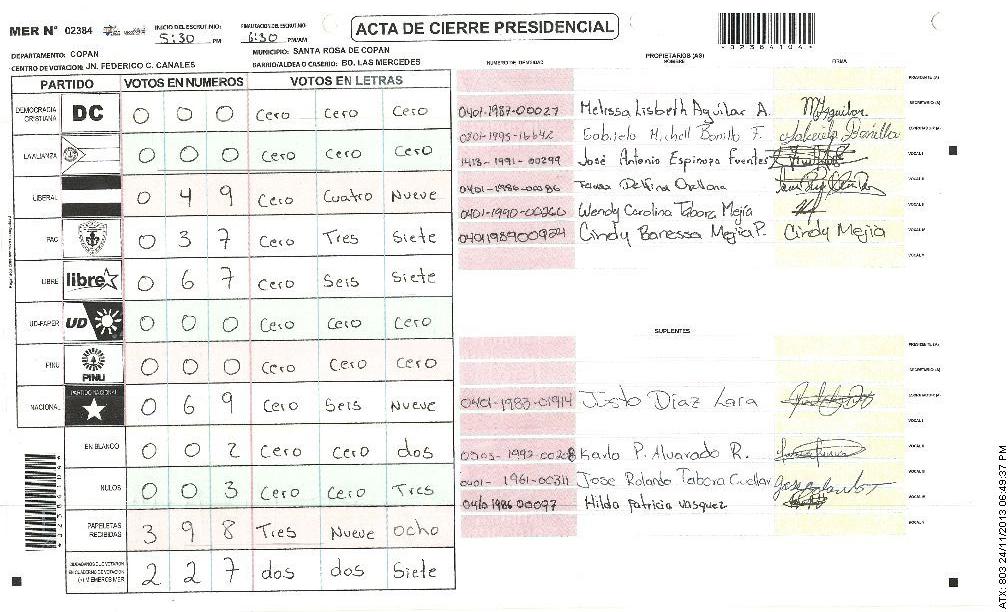 MER Nº 02384
INICIO DEL ESCRUTINIO: 5:30 PM
FINALIZACION DEL ESCRUTINIO: 6:30 PM/AM
ACTA DE CIERRE PRESIDENCIAL
02384104
DEPARTAMENTO: COPAN
MUNICIPIO: SANTA ROSA DE COPAN
CENTRO DE VOTACION: JN. FEDERICO C. CANALES
BARRIO/ALDEA O CASERIO: BO. LAS MERCEDES
PARTIDO VOTOS EN NUMEROS VOTOS EN LETRAS
DEMOCRACIA CRISTIANA DC 0 0 0 Cero Cero Cero
LA ALIANZA 0 0 0 Cero Cero Cero
LIBERAL 0 4 9 Cero Cuatro Nueve
PAC 0 3 7 Cero Tres Siete
LIBRE libre 0 6 7 Cero Seis Siete
UD-FAPER UD 0 0 0 Cero Cero Cero
PINU PINU 0 0 0 Cero Cero Cero
NACIONAL PARTIDO NACIONAL 0 6 9 Cero Seis Nueve
EN BLANCO 0 0 2 Cero Cero dos
NULOS 0 0 3 Cero Cero Tres
PAPELETAS RECIBIDAS 3 9 8 Tres Nueve ocho
2 2 7 dos dos Siete
PROPIETARIOS (AS)
NUMERO DE IDENTIDAD NOMBRE FIRMA
PRESIDENTE (A)
0401-1987-00027 Melissa Lisbeth Aguilar A. M Aguilar SECRETARIO (A)
0801-1995-16642 Gabriela Michell Bonilla F. Gabriela Bonilla ESCRUTADOR (A)
1413-1991-00299 José Antonio Espinoza Fuentes VOCAL I
0401-1986-00086 Orellana VOCAL II
0401-1990-00260 Wendy Carolina Tabora Mejía VOCAL III
0401198900924 Cindy Banessa Mejia P. Cindy Mejia VOCAL IV
VOCAL V
SUPLENTES
PRESIDENTE (A)
SECRETARIO (A)
0401-1983-01914 Justo Diaz Lara ESCRUTADOR (A)
VOCAL I
Karla P. Alvarado R. VOCAL II
0401-1961-00311 Jose Rolando Tabora Cuellar VOCAL III
Hilda patricia vasquez VOCAL IV
VOCAL V
ATX: 803 24/11/2013 06:49:37 PM